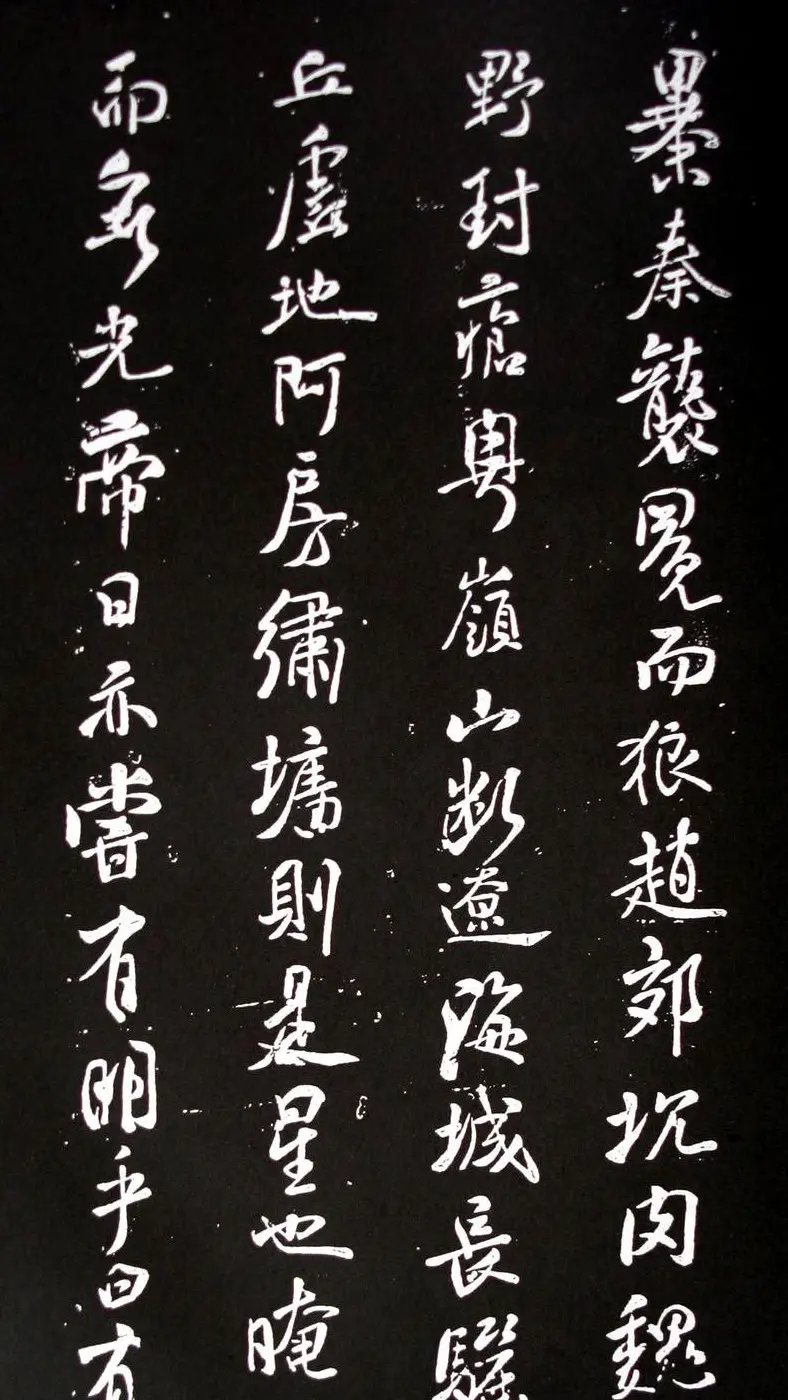 暴秦襲冕而狼趙郊坑肉魏
野封瘡粵嶺山斷遼海城長驪
丘虛地阿房繡墉則是星也晻
而無光帝曰亦嘗有明乎曰有